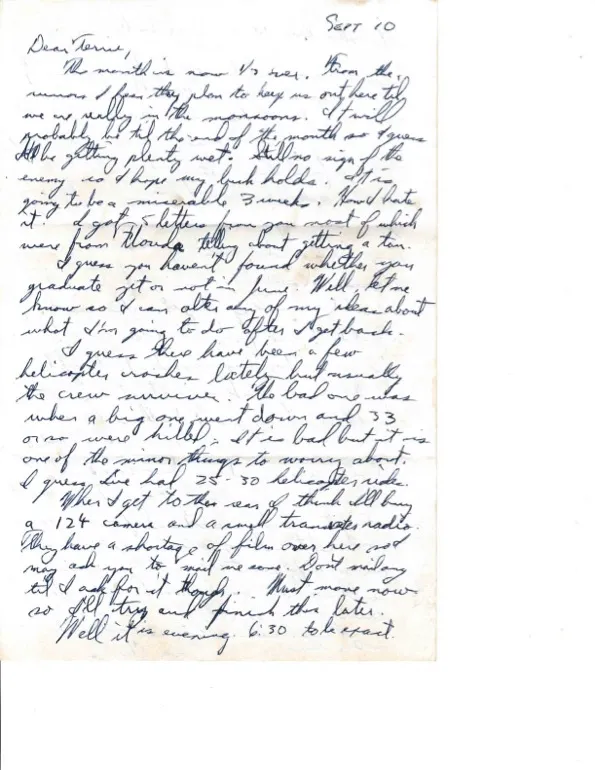 Sept 10
Dear Terrie,
The month is now 1/3 over. From the
rumors I hear they plan to keep us out here til
we are really in the monsoons. It will
probably be til the end of the month so I guess
I'll be getting plenty wet. Still no sign of the
enemy so I hope my luck holds. It is
going to be a miserable 3 weeks. How I hate
it. I got 5 letters from you most of which
were from Florida telling about getting a tan.
I guess you haven't found whether you
graduate yet or not in June. Well, let me
know so I can alter any of my ideas about
what I'm going to do after I get back.
I guess there have been a few
helicopter crashes lately but usually
the crew survives. The bad one was
when a big one went down and 33
or so were killed. It is bad but it is
one of the minor things to worry about.
I guess I've had 25-30 helicopter rides.
When I get to the rear I think I'll buy
a 124 camera and a small transister radio.
They have a shortage of film over here so I
may ask you to mail me some. Don't mail any
til I ask for it though. Must move now
so I'll try and finish this later.
Well it is evening 6:30 to be exact.